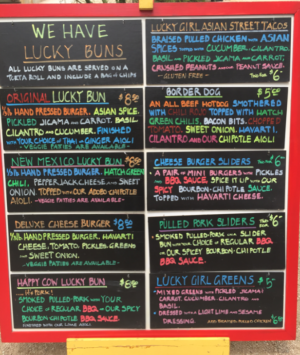 WE HAVE
LUCKY BUNS
ALL LUCKY BUNS ARE SERVED ON A
TELERA ROLL AND INCLUDE A BAG OF CHIPS
ORIGINAL LUCKY BUN $8
1/3 lb HAND PRESSED BURGER, ASIAN SPICE,
PICKLED JICAMA AND CARROT, BASIL,
CILANTRO AND CUCUMBER. FINISHED
WITH YOUR CHOICE OF THAI OR GINGER AIOLI
-VEGGIE PATTIES ARE AVAILABLE-
NEW MEXICO LUCKY BUN $8
1/3 lb HAND PRESSED BURGER, HATCH GREEN
CHILI, PEPPER JACK CHEESE, AND SWEET
ONION, TOPPED WITH OUR ADOBO CHIPOTLE
AIOLI. -VEGGIE PATTIES ARE AVAILABLE-
DELUXE CHEESE BURGER $8
1/3 lb HAND PRESSED BURGER, HAVARTI
CHEESE, TOMATO, PICKLES, GREENS
AND SWEET ONION.
-VEGGIE PATTIES ARE AVAILABLE-
HAPPY COW LUCKY BUN $8
IT'S PORK!
SMOKED PULLED PORK WITH YOUR
CHOICE OF REGULAR BBQ OR OUR SPICY
BOURBON CHIPOTLE BBQ SAUCE.
FINISHED WITH OUR LIME AIOLI
LUCKY GIRL ASIAN STREET TACOS
BRAISED PULLED CHICKEN WITH ASIAN
SPICES TOPPED WITH CUCUMBER, CILANTRO,
BASIL AND PICKLED JICAMA AND CARROT,
CRUSHED PEANUTS AND PEANUT SAUCE.
-GLUTEN FREE- $6
BORDER DOG $5
AN ALL BEEF HOTDOG SMOTHERED
WITH TOPPED WITH HATCH
GREEN CHILIS, BACON BITS, CHOPPED
TOMATO, SWEET ONION, HAVARTI,
CILANTRO AND OUR CHIPOTLE AIOLI
CHEESE BURGER SLIDERS $6
• A PAIR OF MINI BURGERS WITH PICKLES
AND BBQ SAUCE, SPICE IT UP WITH OUR
SPICY BOURBON-CHIPOTLE SAUCE.
TOPPED WITH HAVARTI CHEESE.
PULLED PORK SLIDERS $6
• SMOKED PULLED PORK ON A SLIDER
BUN WITH YOUR CHOICE OF REGULAR BBQ
OR OUR SPICY BOURBON-CHIPOTLE
BBQ SAUCE.
LUCKY GIRL GREENS $5
• MIXED GREENS WITH PICKLED JICAMA &
CARROT, CUCUMBER, CILANTRO AND
BASIL.
• DRESSED WITH A LIGHT LIME AND SESAME
DRESSING.